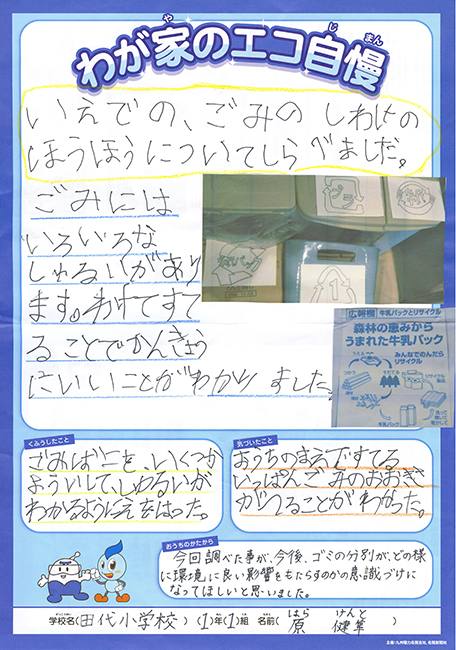 わが家のエコ自慢
いえでの、ごみのしわけの
ほうほうについてしらべました。
ごみには
いろいろな
しゅるいがあり
ます。わけてすて
ることでかんきょう
にいいことがわかりました。
プラ
1
広報欄 牛乳パックとリサイクル
森林の恵みから
うまれた牛乳パック
みんなでのんだら
リサイクル
牛乳パック
くふうしたこと
ごみばこを、いくつか
よういして、しゅるいが
わかるようにえをはった。
気づいたこと
おうちのまえですてる
いっぱんごみのおおきさ
がへることがわかった。
おうちのかたから
今回調べた事が、今後、ゴミの分別が、どの様
に環境に良い影響をもたらすのかの意識づけに
なってほしいと思いました。
学校名(田代小学校)(1)年(1)組 名前(原 健隼)
主催/九州電力佐賀支社、佐賀新聞社